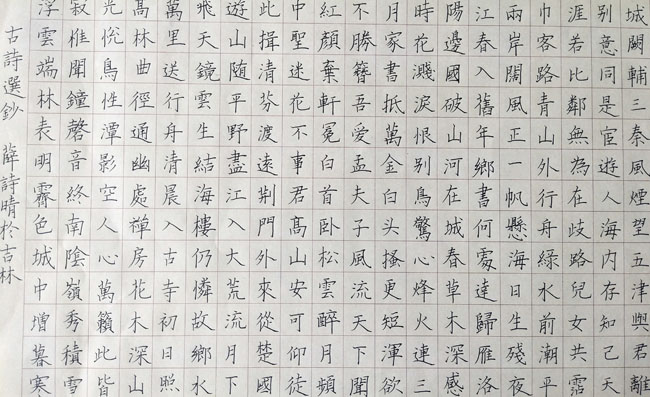 城闕輔三秦風煙望五津與君離
别意同是宦遊人海内存知己天
涯若比鄰無為在歧路兒女共霑
巾客路青山外行舟綠水前潮平
兩岸闊風正一帆懸海日生殘夜
江春入舊年鄉書何處達歸雁洛
陽邊國破山河在城春草木深感
時花濺淚恨别鳥驚心烽火連三
月家書抵萬金白头搔更短渾欲
不勝簪吾愛孟夫子風流天下聞
紅顏棄軒冕白首卧松雲醉月頻
中聖迷花不事君髙山安可仰徒
此揖清芬渡遠荆門外來從楚國
遊山随平野盡江入大荒流月下
飛天鏡雲生結海樓仍憐故鄉水
萬里送行舟清晨入古寺初日照
髙林曲徑通幽處禅房花木深山
光悅鳥性潭影空人心萬籟此皆
寂惟聞鐘磬音終南陰嶺秀積雪
浮雲端林表明霽色城中增暮寒
古詩選鈔 薛詩晴於吉林